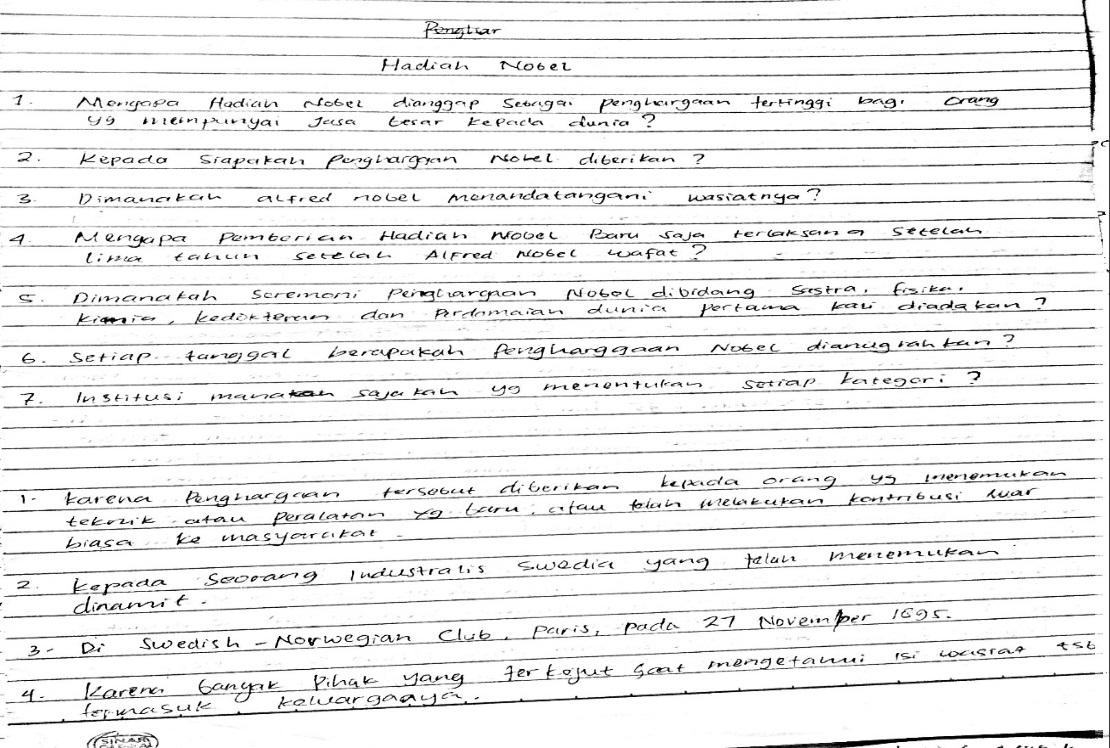 Penghar
Hadiah Nobel
1. Mengapa Hadiah Nobel dianggap sebagai penghargaan tertinggi bagi orang
yg mempunyai jasa besar kepada dunia?
2. Kepada siapakah Penghargaan Nobel diberikan?
3. Dimanakah alfred nobel menandatangani wasiatnya?
4. Mengapa Pemberian Hadiah Nobel Baru saja terlaksana setelah
lima tahun setelah Alfred Nobel wafat?
5. Dimanakah seremoni Penghargaan Nobel dibidang sastra, fisika,
kimia, kedokteran dan Perdamaian dunia pertama kali diadakan?
6. Setiap tanggal berapakah Pengharggaan Nobel dianugrahkan?
7. Institusi manakah sajakah yg menentukan setiap kategori?
1. Karena Penghargaan tersebut diberikan kepada orang yg menemukan
teknik atau Peralatan yg baru, atau telah melakukan kontribusi luar
biasa ke masyarakat.
2. Kepada Seorang Industralis Swedia yang telah menemukan
dinamit.
3- Di Swedish - Norwegian Club, Paris, Pada 27 November 1695.
4. Karena banyak Pihak yang terkejut saat mengetahui isi wasiat tsb
termasuk keluargaaya.
SINAR